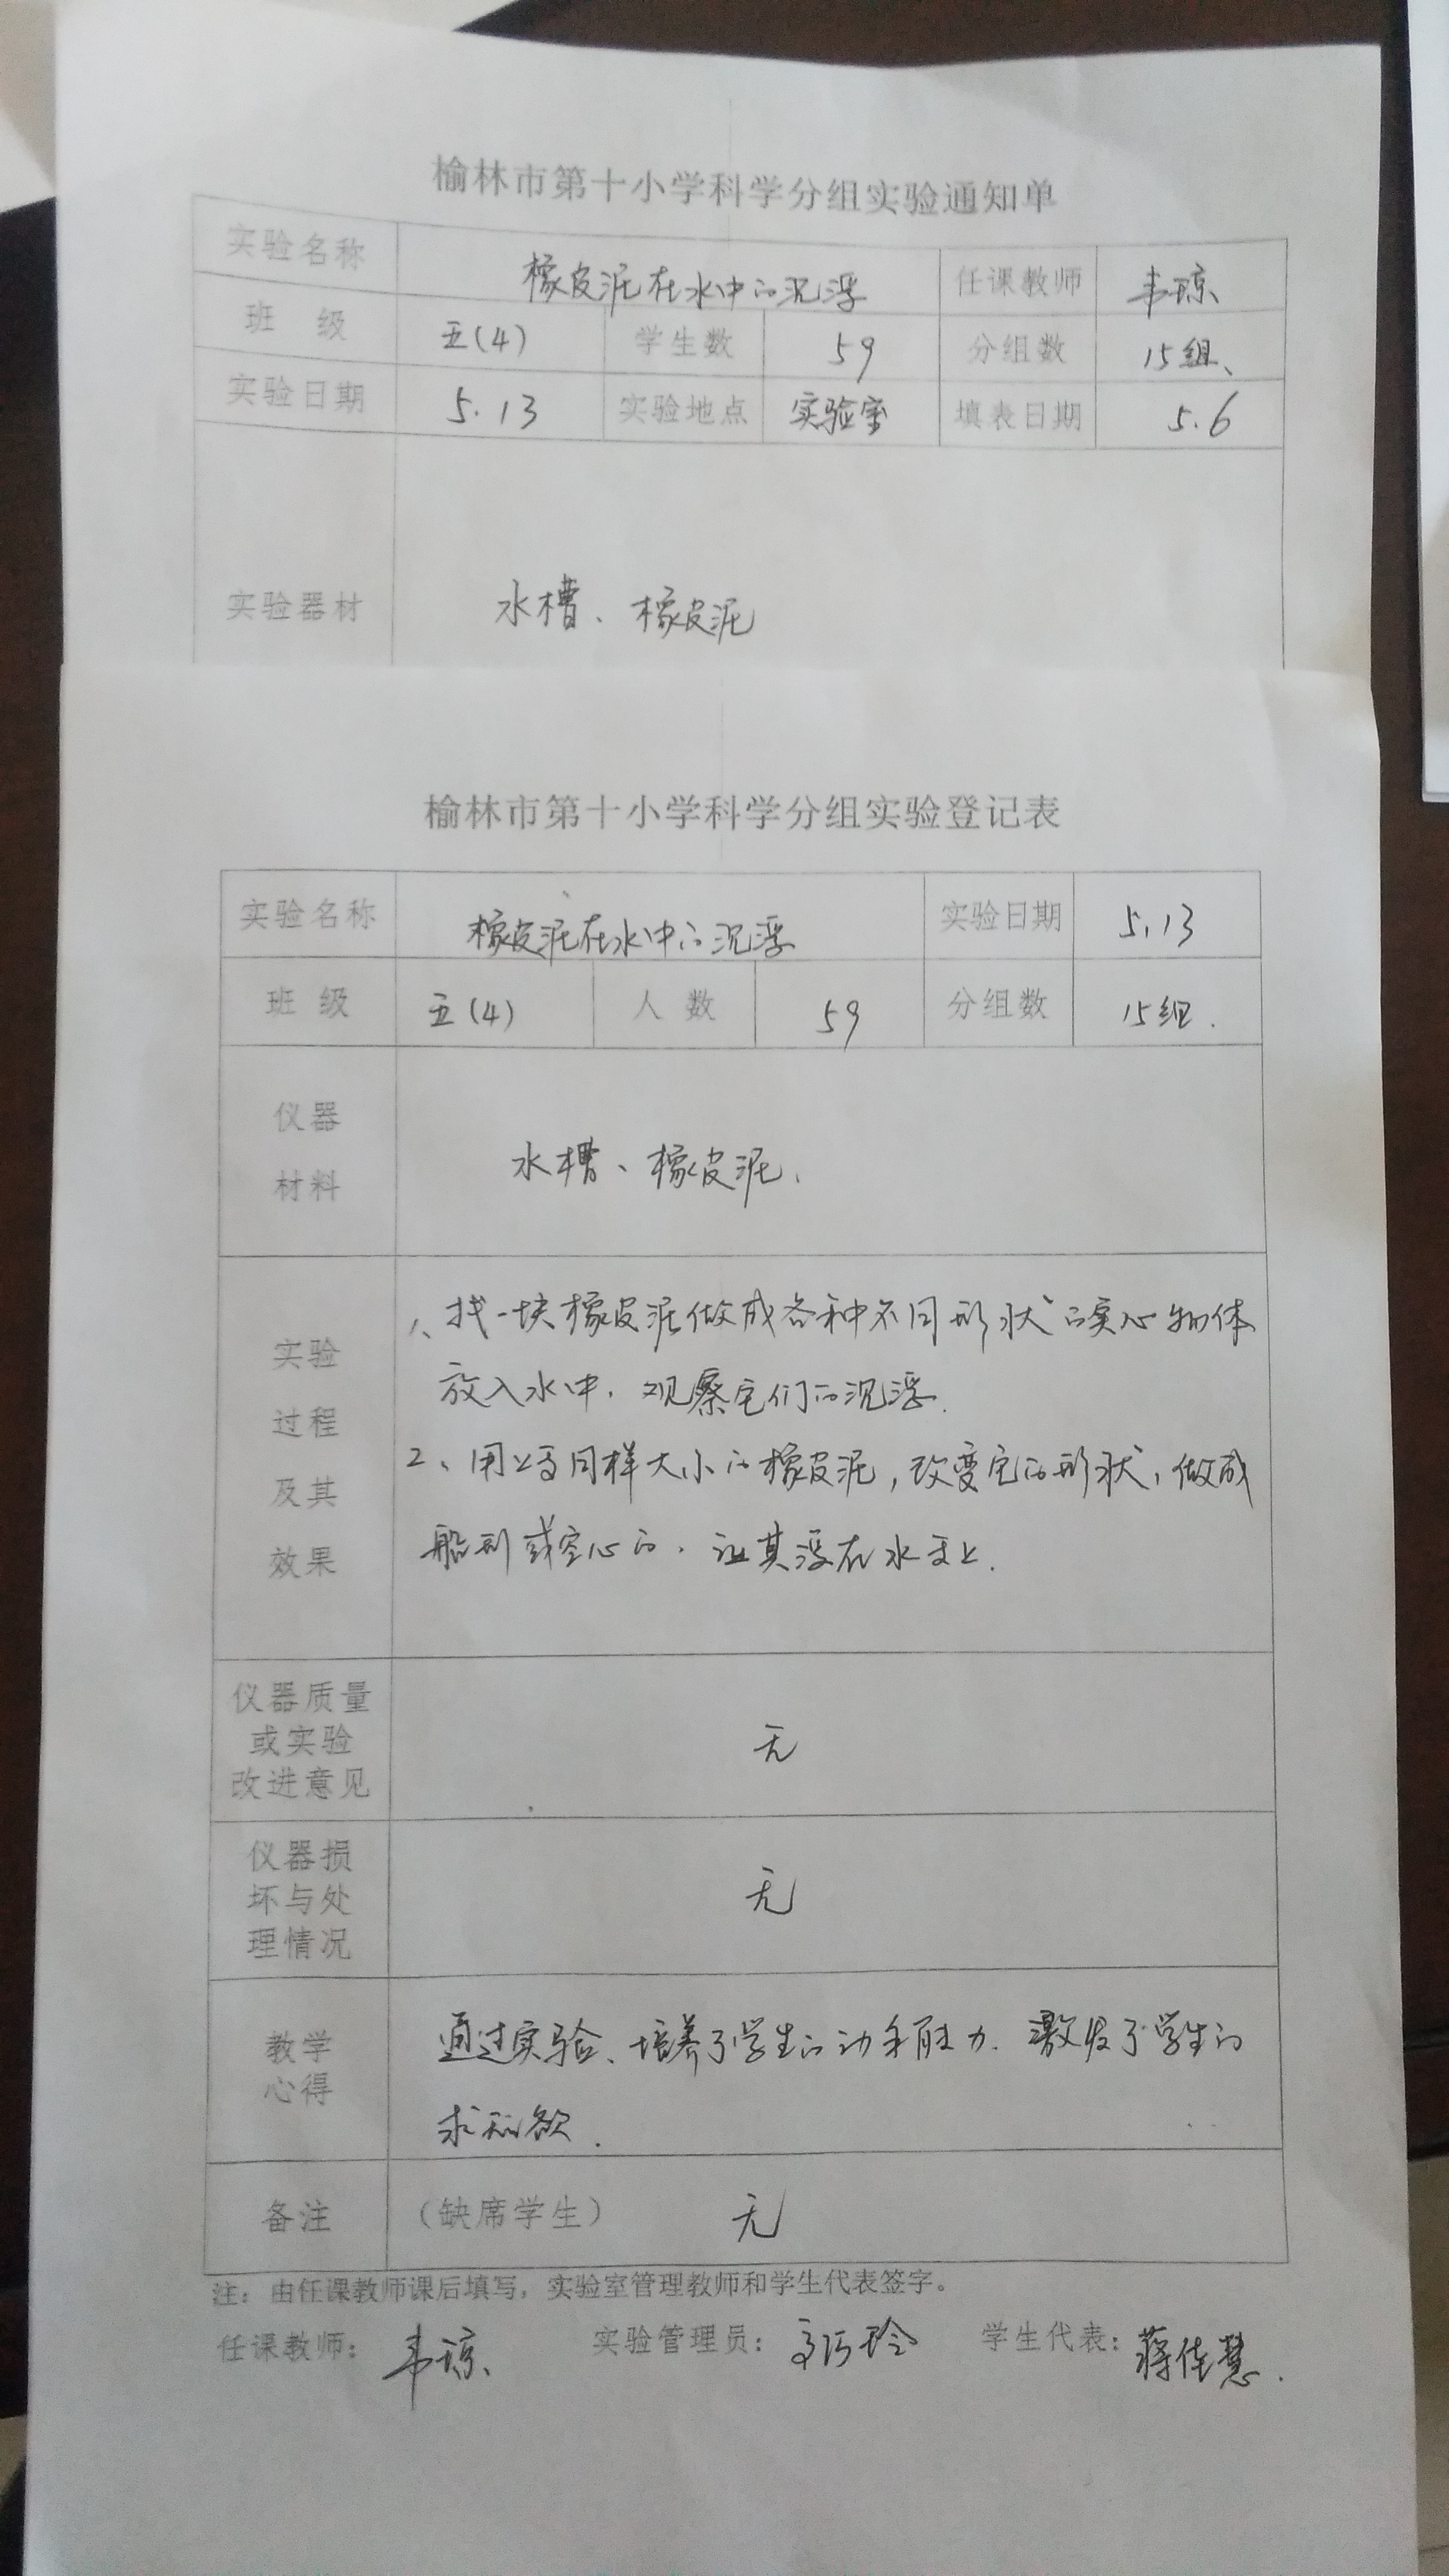 榆林市第十小学科学分组实验通知单
实验名称 橡皮泥在水中的沉浮 任课教师 韦琼
班 级 五(4) 学生数 59 分组数 15组、
实验日期 5.13 实验地点 实验室 填表日期 5.6
实验器材 水槽、橡皮泥
榆林市第十小学科学分组实验登记表
实验名称 橡皮泥在水中的沉浮 实验日期 5.13
班 级 五(4) 人 数 59 分组数 15组.
仪器
材料
水槽、橡皮泥、
实验
过程
及其
效果
1、找一块橡皮泥做成各种不同形状的实心物体
放入水中,观察它们的沉浮.
2、用与同样大小的橡皮泥,改变它的形状,做成
船形或空心的,让其浮在水面上.
仪器质量
或实验
改进意见
无
仪器损
坏与处
理情况
无
教学
心得
通过实验、培养了学生的动手能力.激发了学生的
求知欲.
备注 (缺席学生) 无
注：由任课教师课后填写，实验室管理教师和学生代表签字。
任课教师：韦琼、 实验管理员： 学生代表：蒋佳慧.